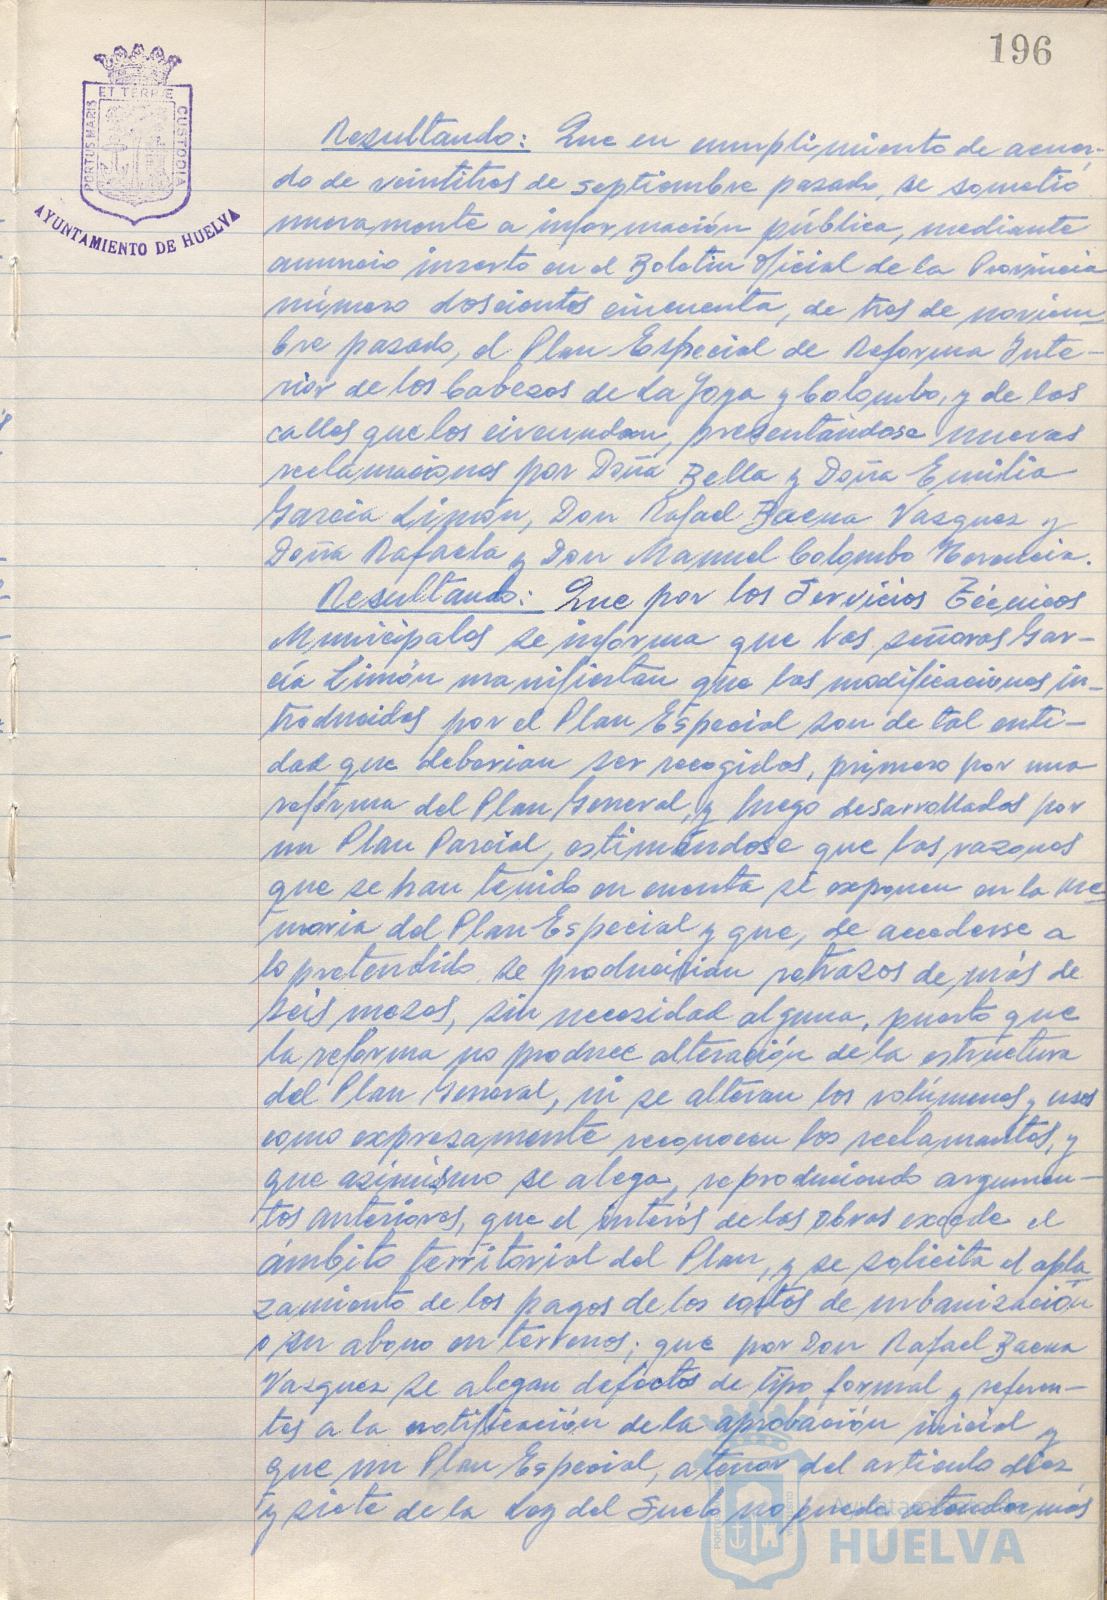 196
ET TERRÆ
PORTUS MARIS
CUSTODIA
AYUNTAMIENTO DE HUELVA
Resultando: Que en cumplimiento de acuer-
do de veintitres de septiembre pasado, se sometió
nuevamente a información pública, mediante
anuncio inserto en el Boletin Oficial de la Provincia
número doscientos cincuenta, de tres de noviem-
bre pasado, el Plan Especial de Reforma Inte-
rior de los Cabezos de La Joya y Colombo, y de las
calles que los circundan, presentándose nuevas
reclamaciones por Doña Bella y Doña Emilia
García Limón, Don Rafael Baena Vazquez y
Doña Rafaela y Don Manuel Colombo Herencia.
Resultando: Que por los Servicios Técnicos
Municipales se informa que las señoras Gar-
cía Limón manifiestan que las modificaciones in-
troducidas por el Plan Especial son de tal enti-
dad que deberian ser recogidas, primero por una
reforma del Plan General, y luego desarrollados por
un Plan Parcial, estimándose que las razones
que se han tenido en cuenta se exponen en la me-
moria del Plan Especial y que, de accederse a
lo pretendido se producirian retrasos de más de
seis meses, sin necesidad alguna, puesto que
la reforma no produce alteración de la estructura
del Plan General, ni se alteran los volúmenes y usos
como expresamente reconocen los reclamantes, y
que asimismo se alega, reproduciendo argumen-
tos anteriores, que el interés de las obras excede el
ámbito territorial del Plan, y se solicita el apla-
zamiento de los pagos de los costos de urbanización
o su abono en terrenos; que por Don Rafael Baena
Vazquez se alegan defectos de tipo formal y referen-
tes a la notificación de la aprobación inicial y
que un Plan Especial, a tenor del articulo diez
y siete de la Ley del Suelo no puede atender más
Ayuntamiento
HUELVA